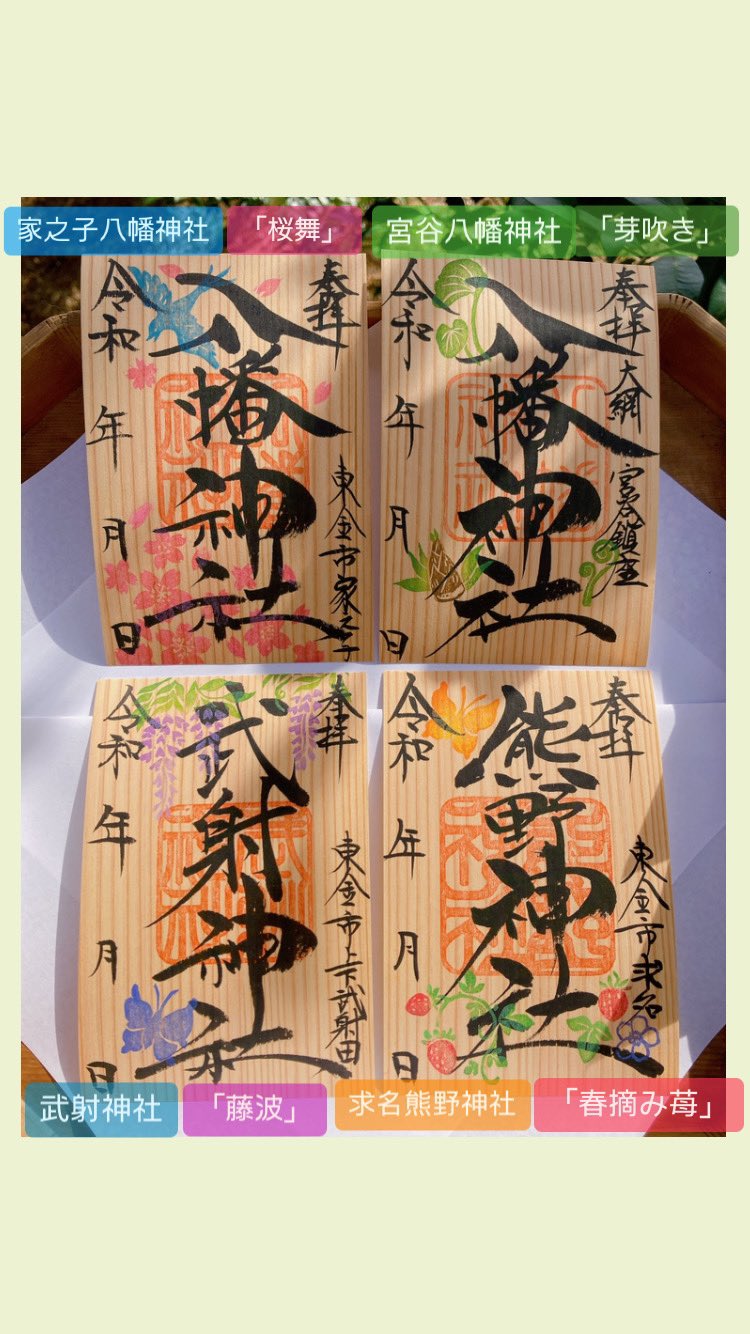 家之子八幡神社
「桜舞」
宮谷八幡神社
「芽吹き」
奉拝
八幡神社
東金市家之子
令和 年 月 日
奉拝
大網 宮谷鎮座
八幡神社
令和 年 月 日
奉拝
武射神社
東金市上武射田
令和 年 月 日
奉拝
熊野神社
東金市求名
令和 年 月 日
武射神社
「藤波」
求名熊野神社
「春摘み苺」